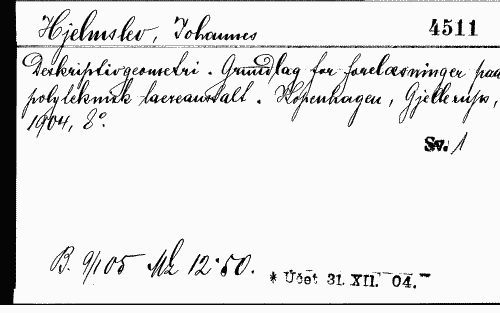 Hjelmslev, Johannes 4511
Deskriptivgeometri. Grundlag for forelæsninger paa
polyteknik laereanstalt. Kopenhagen, Gjellerups,
1904, 8°.
Sv. 1
B. 9/I 05 Mk 12·50. * Účet 31. XII. 04.